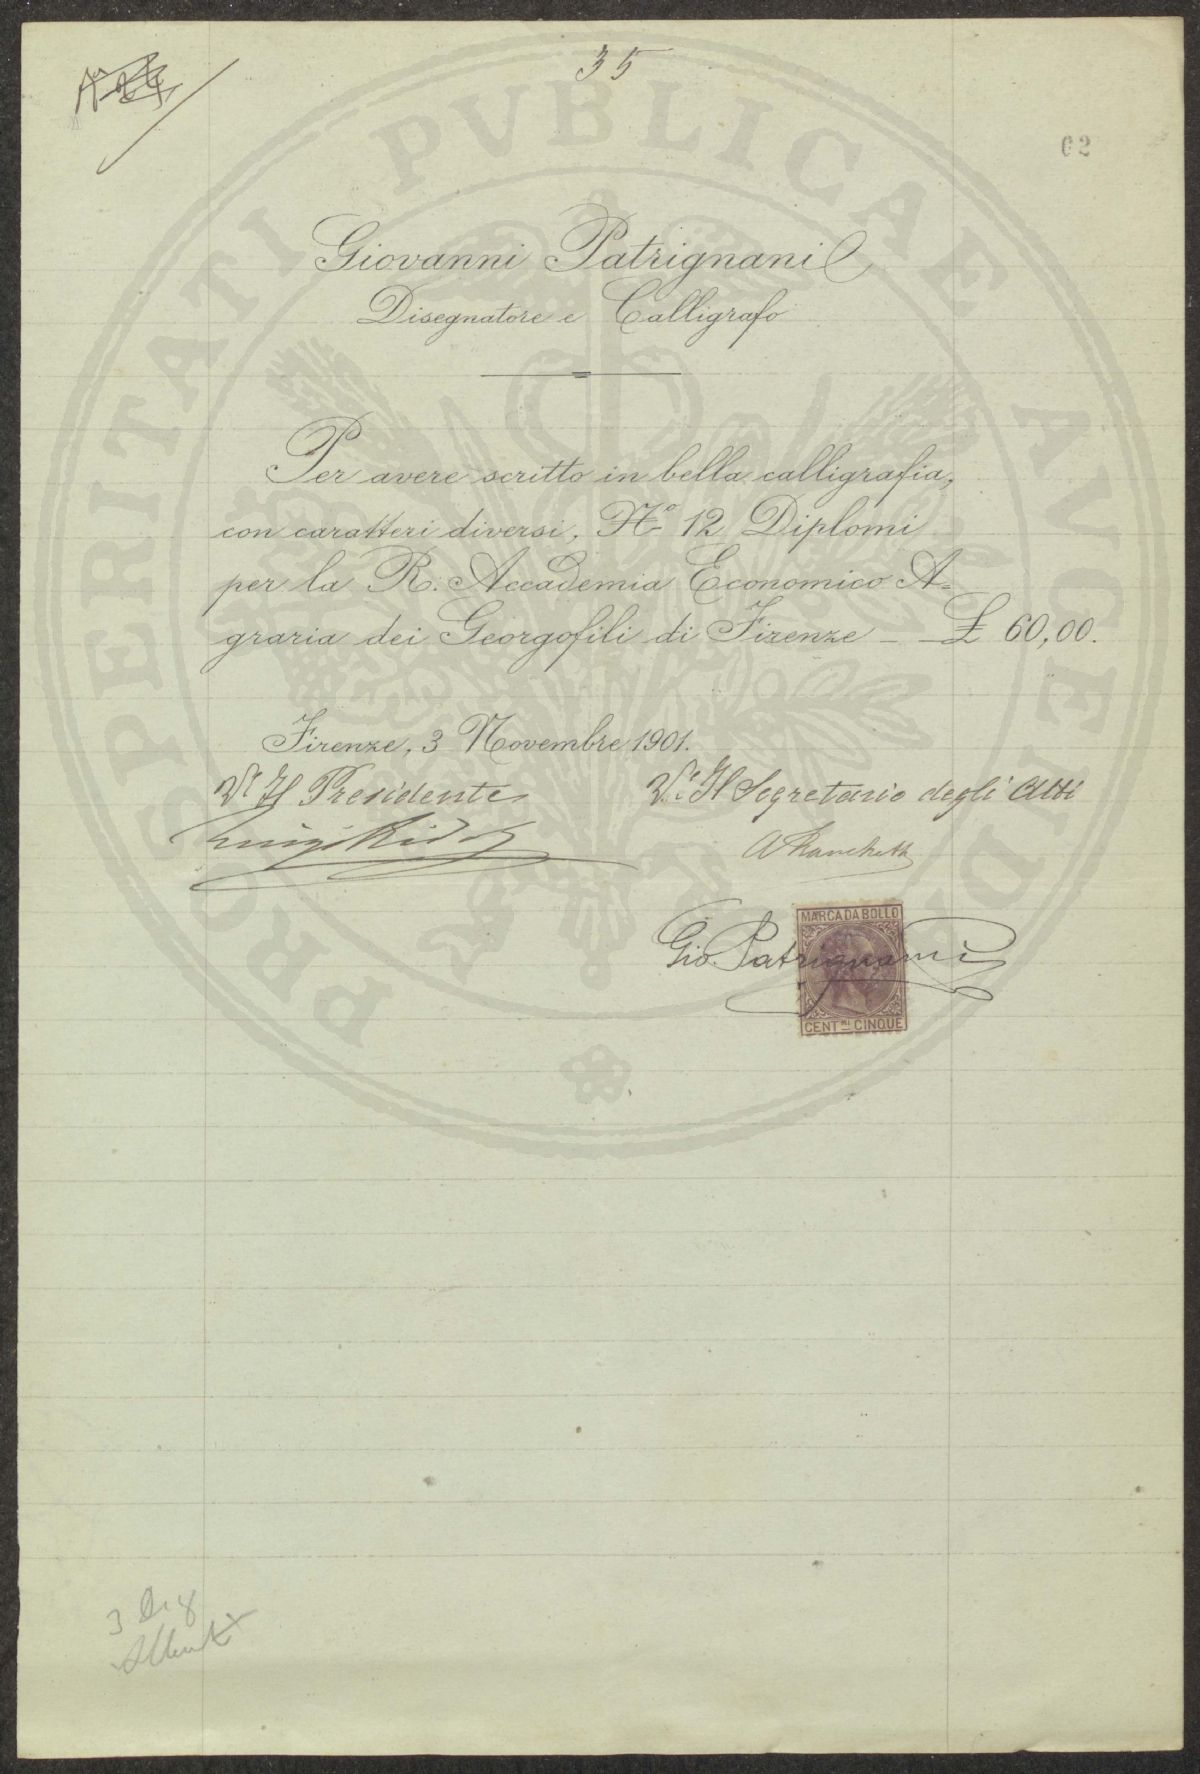 35
02
PROSPERITATI PVBLICAE AVGENDAE
Giovanni Patrignani
Disegnatore e Calligrafo
Per avere scritto in bella calligrafia,
con caratteri diversi, No 12 Diplomi
per la R. Accademia Economico A=
graria dei Georgofili di Firenze — £ 60,00.
Firenze, 3 Novembre 1901.
Vo Il Presidente
Vo Il Segretario degli Atti
Luigi Ridolfi
MARCA DA BOLLO
Gio. Patrignani
CENTMI CINQUE
3